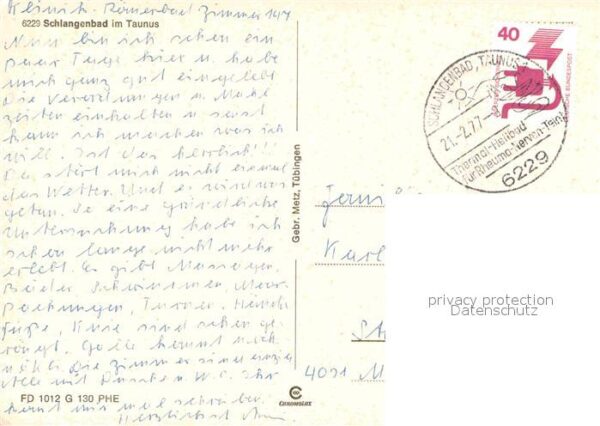 Klinik Römerbad Zimmer
6229 Schlangenbad im Taunus
Nun bin ich schon ein
paar Tage hier u. habe
mich ganz gut eingelebt
die Verordnungen u. Mahl
zeiten einhalten u. sonst
kann ich machen was ich
will. Ist das herrlich!!!
Da stört mich nicht einmal
das Wetter. Und es wird was
getan. So eine gründliche
Untersuchung habe ich
schon lange nicht mehr
erlebt. Es gibt Massagen,
Bäder Schwimmen,
Packungen, Turnen.
Füße, Knie sind schon ge
röngt. Galle kommt noch
Die Zimmer sind
mit Duschen W.C. Ihr
könnt mir mal schreiben.
Herzlichst
FD 1012 G 130 PHE
Gebr. Metz, Tübingen
CHROMOLUX
40
DEUTSCHE BUNDESPOST
SCHLANGENBAD, TAUNUS
21.-2.77
Thermal-Heilbad
für Rheuma-Nerven-
6229
Karl
4091 M
privacy protection
Datenschutz